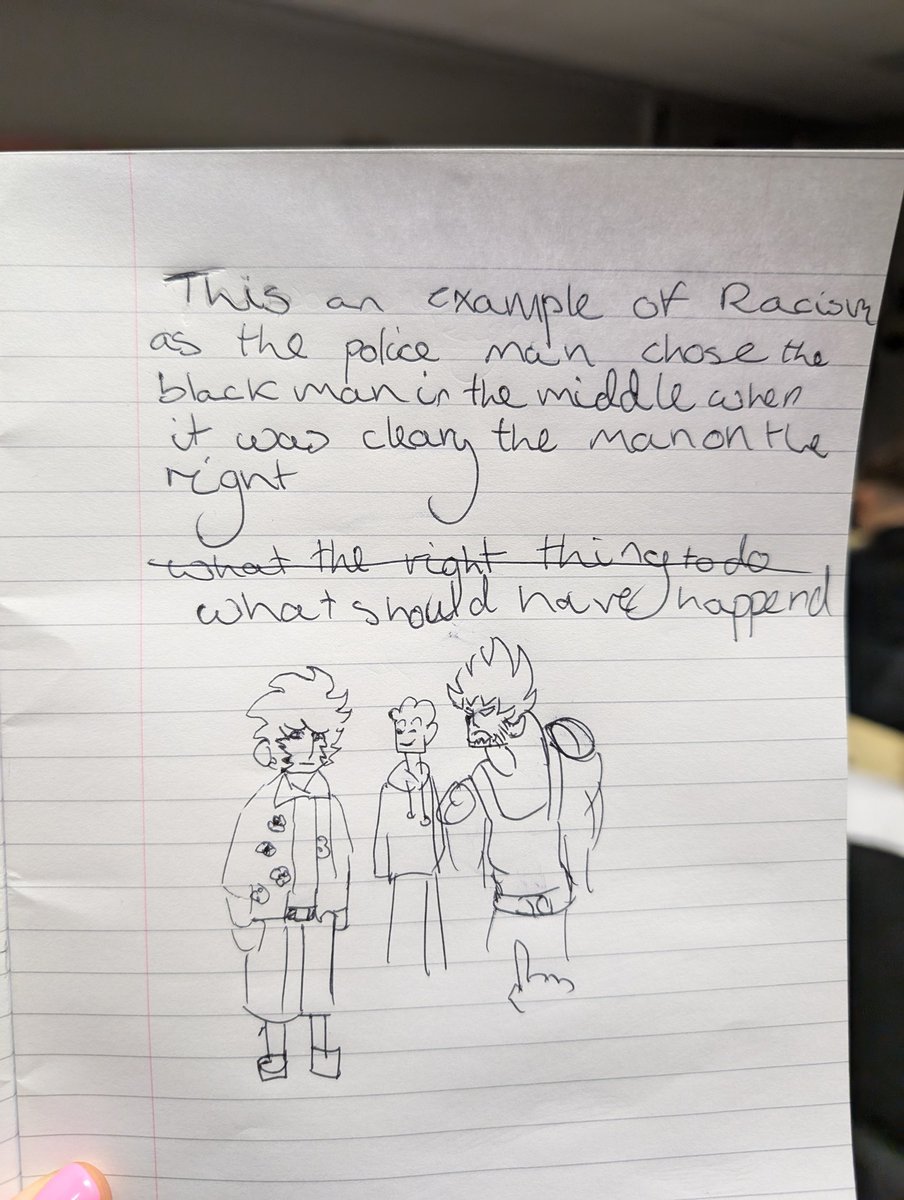 This an example of Racism
as the police man chose the
black man in the middle when
it was cleary the man on the
right
what the right thing to do
what should have happend